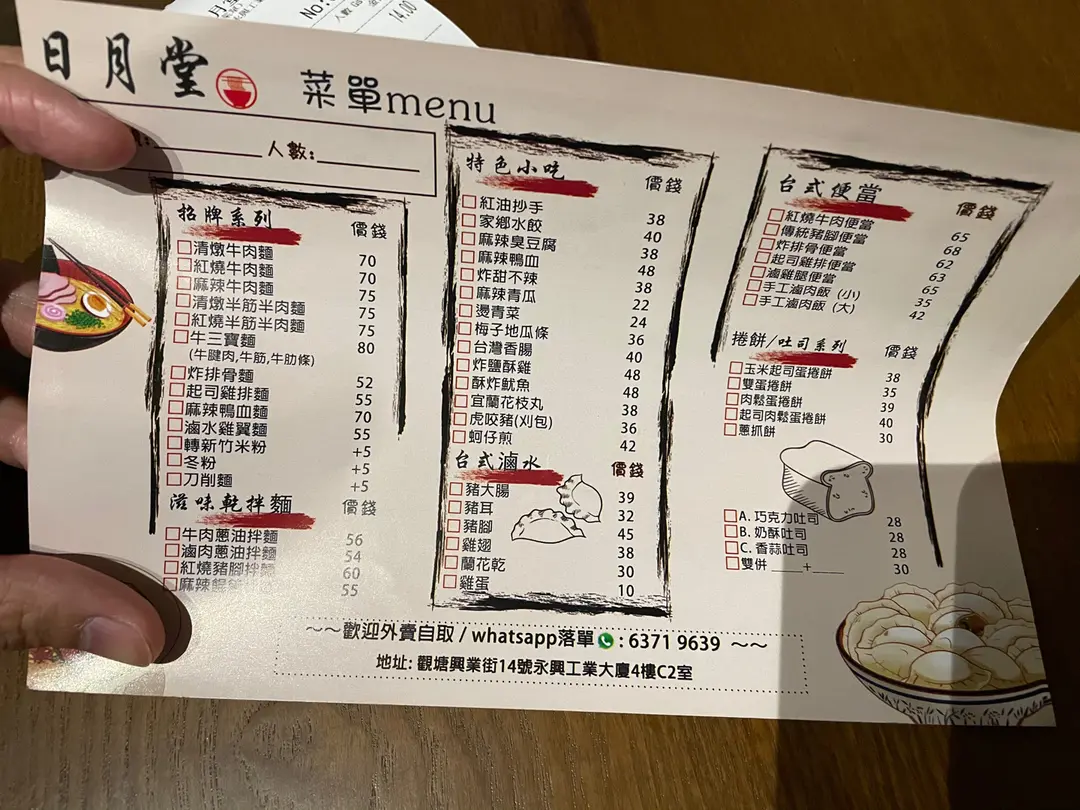 No.
人數
14.00
日月堂
菜單menu
人數:
招牌系列 價錢
清燉牛肉麵 70
紅燒牛肉麵 70
麻辣牛肉麵 75
清燉半筋半肉麵 75
紅燒半筋半肉麵 75
牛三寶麵 80
(牛腱肉,牛筋,牛肋條)
炸排骨麵 52
起司雞排麵 55
麻辣鴨血麵 70
滷水雞翼麵 55
轉新竹米粉 +5
冬粉 +5
刀削麵 +5
滋味乾拌麵 價錢
牛肉蔥油拌麵 56
滷肉蔥油拌麵 54
紅燒豬腳拌麵 60
麻辣 55
特色小吃 價錢
紅油抄手 38
家鄉水餃 40
麻辣臭豆腐 38
麻辣鴨血 48
炸甜不辣 38
麻辣青瓜 22
燙青菜 24
梅子地瓜條 36
台灣香腸 40
炸鹽酥雞 48
酥炸魷魚 48
宜蘭花枝丸 38
虎咬豬(刈包) 36
蚵仔煎 42
台式滷水 價錢
豬大腸 39
豬耳 32
豬腳 45
雞翅 38
蘭花乾 30
雞蛋 10
台式便當 價錢
紅燒牛肉便當 65
傳統豬腳便當 68
炸排骨便當 62
起司雞排便當 63
滷雞腿便當 65
手工滷肉飯 (小) 35
手工滷肉飯 (大) 42
捲餅/吐司系列 價錢
玉米起司蛋捲餅 38
雙蛋捲餅 35
肉鬆蛋捲餅 39
起司肉鬆蛋捲餅 40
蔥抓餅 30
A. 巧克力吐司 28
B. 奶酥吐司 28
C. 香蒜吐司 28
雙併 ___+___ 30
~~歡迎外賣自取 / whatsapp落單 : 6371 9639 ~~
地址: 觀塘興業街14號永興工業大廈4樓C2室